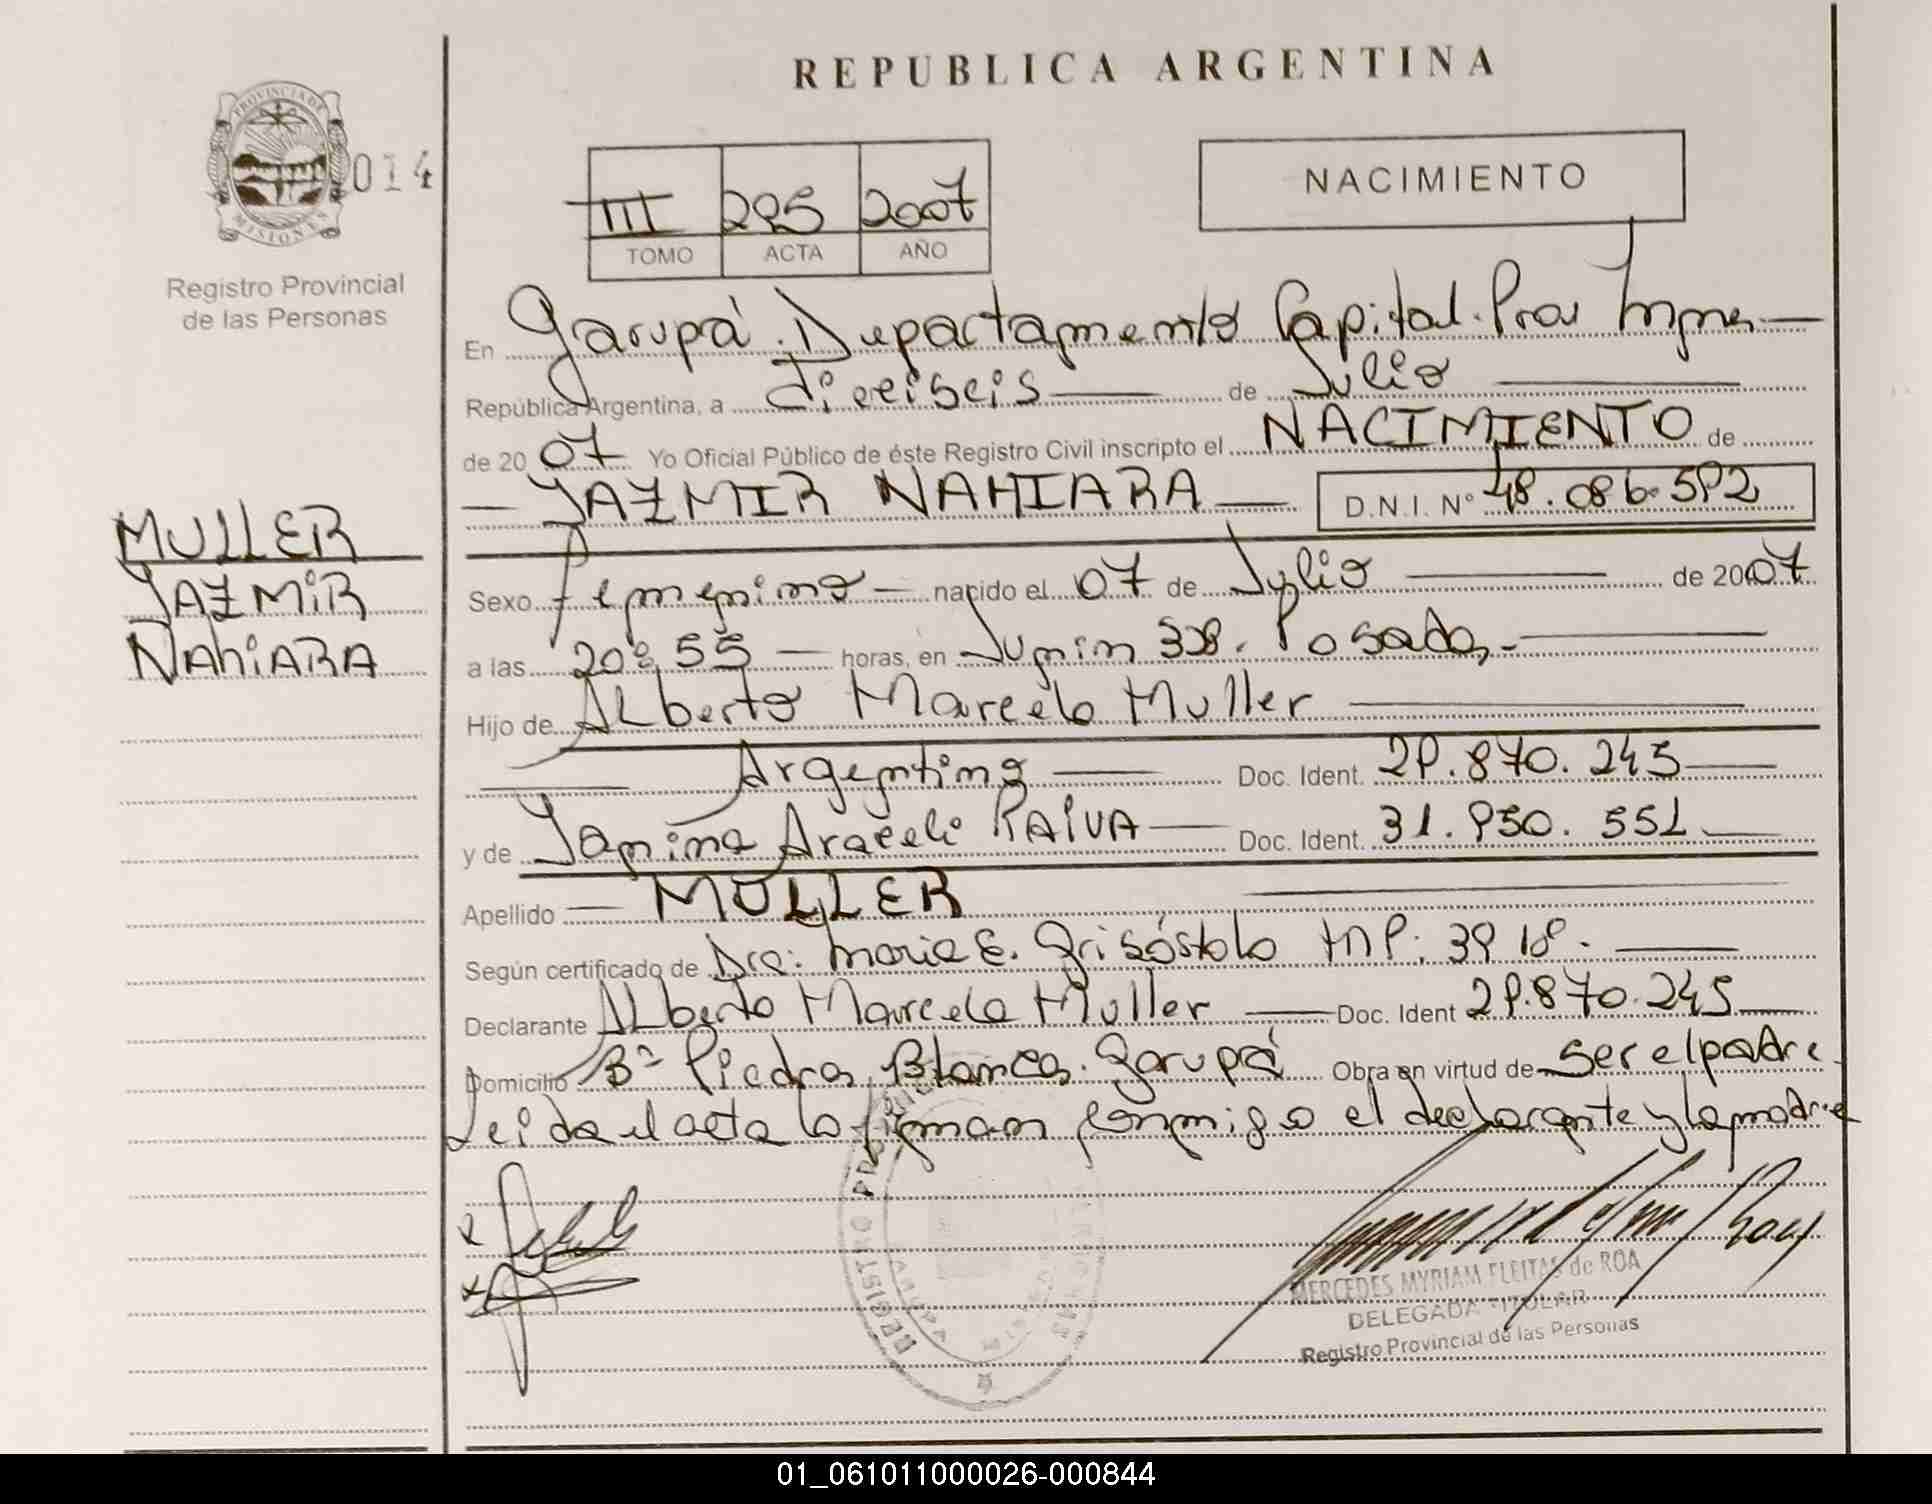 REPUBLICA ARGENTINA
PROVINCIA DE
MISIONES
014
Registro Provincial
de las Personas
III 295 2007
TOMO ACTA AÑO
NACIMIENTO
En Garupá. Departamento Capital. Prov
República Argentina, a dieciseis de Julio
de 2007 Yo Oficial Público de éste Registro Civil inscripto el NACIMIENTO de
YAZMIR NAHIARA D.N.I. Nº 48.086.592
MULLER
YAZMIR
NAHIARA
Sexo femenino nacido el 07 de Julio de 2007
a las 20:55 horas, en Junin 328. Posadas
Hijo de Alberto Marcelo Muller
Argentino Doc. Ident. 29.870.245
y de Yanina Araceli PAIVA Doc. Ident. 31.950.551
Apellido MULLER
Según certificado de Dra: Maria E. Grisóstolo MP: 3918.
Declarante Alberto Marcelo Muller Doc. Ident 29.870.245
Domicilio Bº Piedras Blancas. Garupá Obra en virtud de ser el padre
Leida el acta la firman conmigo el declarante y la madre
MERCEDES MYRIAM FLEITAS de ROA
DELEGADA TITULAR
Registro Provincial de las Personas
REGISTRO
GARUPA
01_061011000026-000844